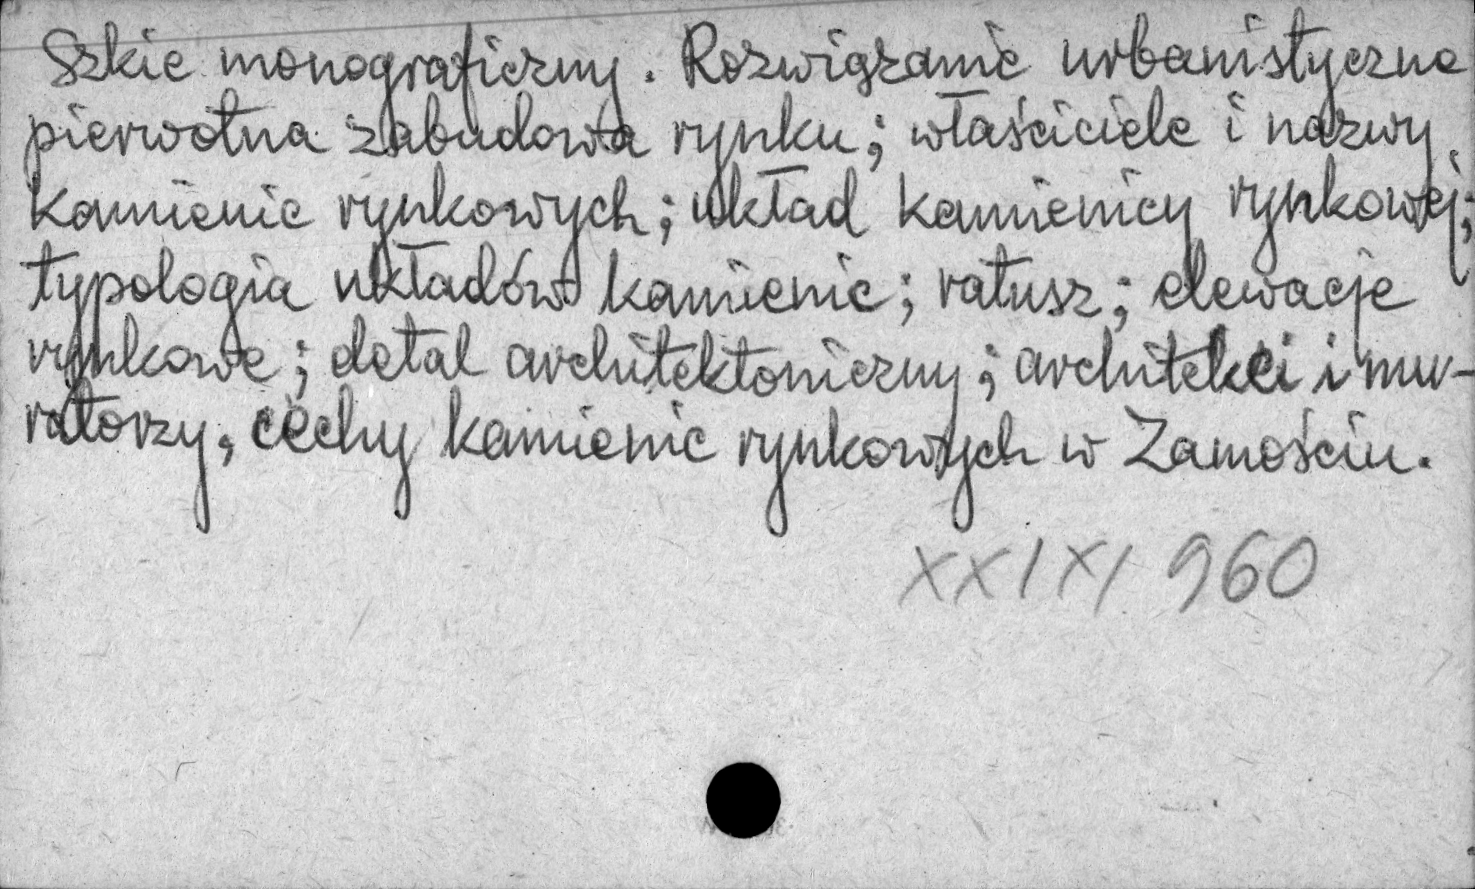 Szkic monograficzny. Rozwiązanie urbanistyczne
pierwotna zabudowa rynku; właściciele i nazwy
kamienic rynkowych; układ kamienicy rynkowej;
typologia układów kamienic; ratusz; elewacje
rynkowe; detal architektoniczny; architekci i mu-
ratorzy, cechy kamienic rynkowych w Zamościu.
XX/X/ 960